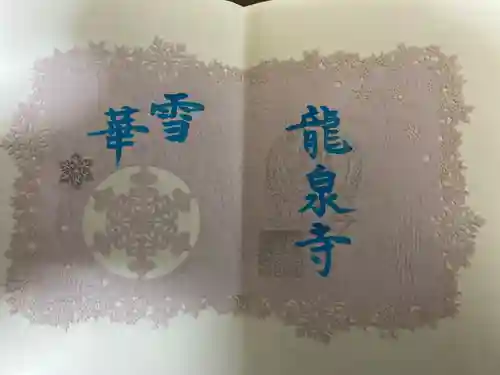 龍泉寺
雪
華